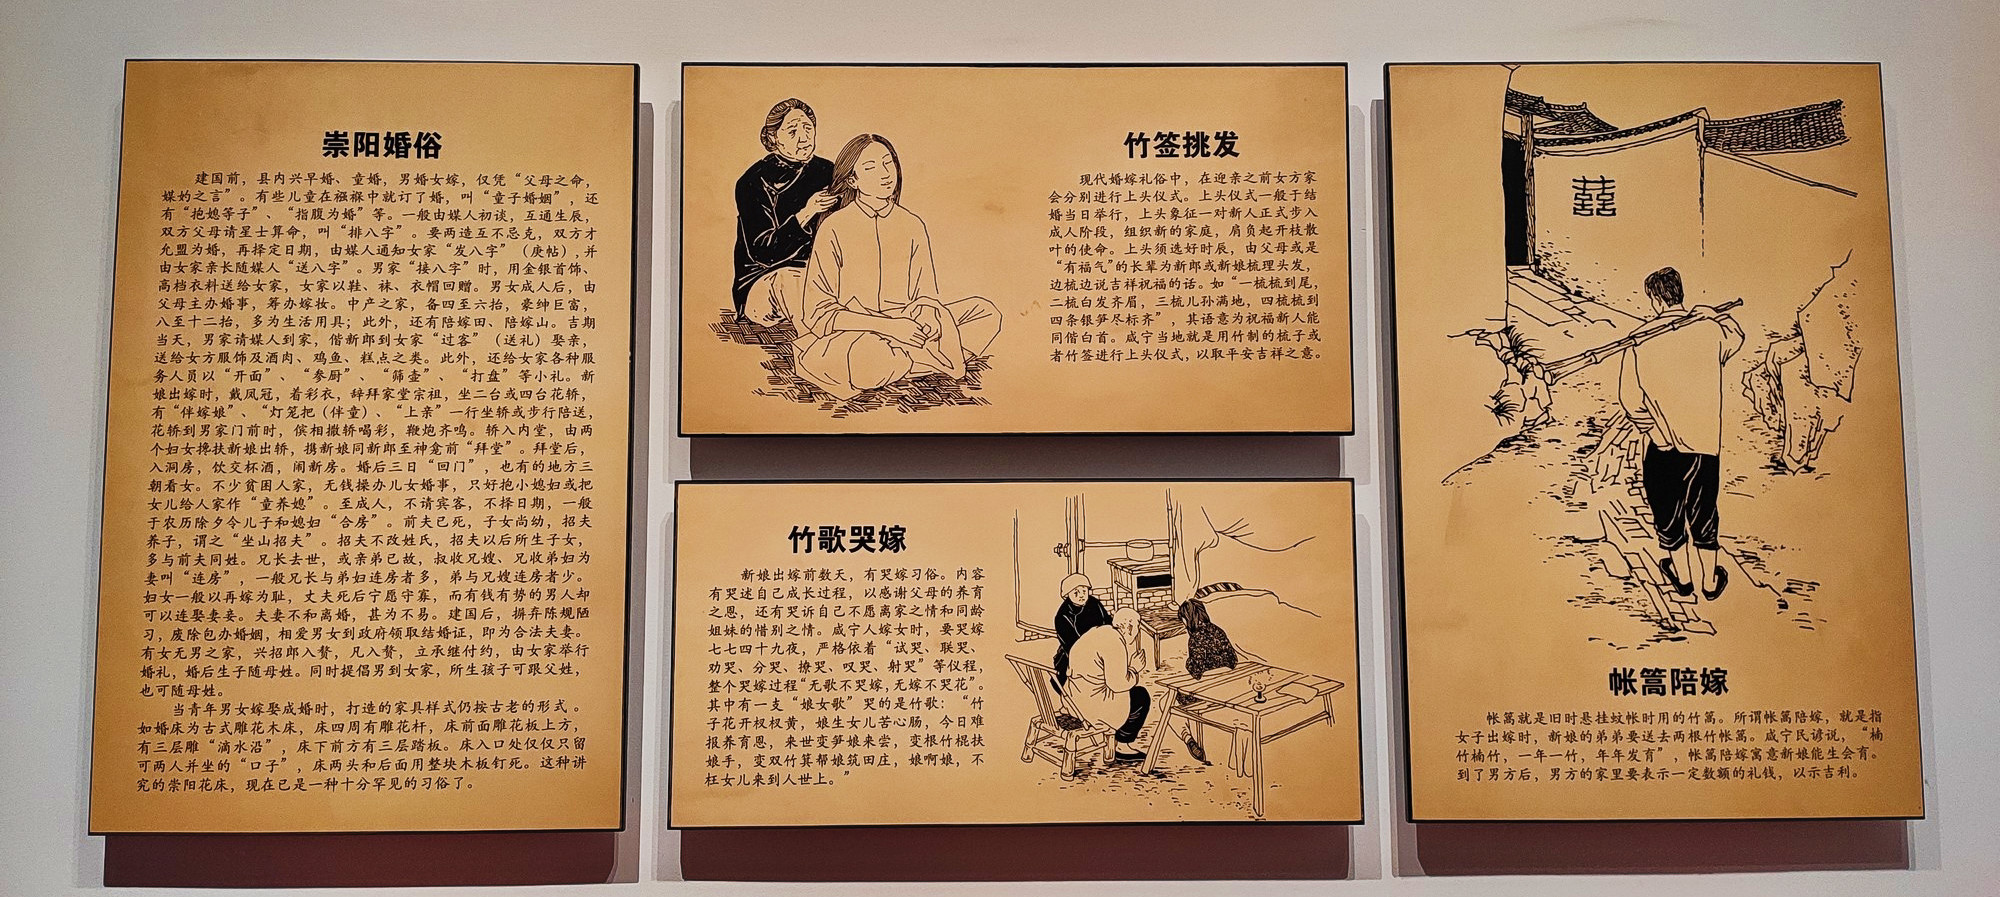 崇阳婚俗
建国前，县内兴早婚、童婚，男婚女嫁，仅凭“父母之命，
媒妁之言”。有些儿童在襁褓中就订了婚，叫“童子婚姻”，还
有“抱媳等子”、“指腹为婚”等。一般由媒人初谈，互通生辰，
双方父母请星士算命，叫“排八字”。要两造互不忌克，双方才
允盟为婚，再择定日期，由媒人通知女家“发八字”（庚帖）,并
由女家亲长随媒人“送八字”。男家“接八字”时，用金银首饰、
高档衣料送给女家，女家以鞋、袜、衣帽回赠。男女成人后，由
父母主办婚事，筹办嫁妆。中产之家，备四至六抬，豪绅巨富，
八至十二抬，多为生活用具；此外，还有陪嫁田、陪嫁山。吉期
当天，男家请媒人到家，偕新郎到女家“过客”（送礼）娶亲，
送给女方服饰及酒肉、鸡鱼、糕点之类。此外，还给女家各种服
务人员以“开面”、“参厨”、“筛壶”、“打盘”等小礼。新
娘出嫁时，戴凤冠，着彩衣，辞拜家堂宗祖，坐二台或四台花轿，
有“伴嫁娘”、“灯笼把（伴童）、“上亲”一行坐轿或步行陪送，
花轿到男家门前时，傧相撒轿喝彩，鞭炮齐鸣。轿入内堂，由两
个妇女搀扶新娘出轿，携新娘同新郎至神龛前“拜堂”。拜堂后，
入洞房，饮交杯酒，闹新房。婚后三日“回门”，也有的地方三
朝看女。不少贫困人家，无钱操办儿女婚事，只好抱小媳妇或把
女儿给人家作“童养媳”。至成人，不请宾客，不择日期，一般
于农历除夕令儿子和媳妇“合房”。前夫已死，子女尚幼，招夫
养子，谓之“坐山招夫”。招夫不改姓氏，招夫以后所生子女，
多与前夫同姓。兄长去世，或亲弟已故，叔收兄嫂、兄收弟妇为
妻叫“连房”，一般兄长与弟妇连房者多，弟与兄嫂连房者少。
妇女一般以再嫁为耻，丈夫死后宁愿守寡，而有钱有势的男人却
可以连娶妻妾。夫妻不和离婚，甚为不易。建国后，摒弃陈规陋
习，废除包办婚姻，相爱男女到政府领取结婚证，即为合法夫妻。
有女无男之家，兴招郎入赘，凡入赘，立承继付约，由女家举行
婚礼，婚后生子随母姓。同时提倡男到女家，所生孩子可跟父姓，
也可随母姓。
当青年男女嫁娶成婚时，打造的家具样式仍按古老的形式。
如婚床为古式雕花木床，床四周有雕花杆，床前面雕花板上方，
有三层雕“滴水沿”，床下前方有三层踏板。床入口处仅仅只留
可两人并坐的“口子”，床两头和后面用整块木板钉死。这种讲
究的崇阳花床，现在已是一种十分罕见的习俗了。
竹签挑发
现代婚嫁礼俗中，在迎亲之前女方家
会分别进行上头仪式。上头仪式一般于结
婚当日举行，上头象征一对新人正式步入
成人阶段，组织新的家庭，肩负起开枝散
叶的使命。上头须选好时辰，由父母或是
“有福气”的长辈为新郎或新娘梳理头发，
边梳边说吉祥祝福的话。如“一梳梳到尾，
二梳白发齐眉，三梳儿孙满地，四梳梳到
四条银笋尽标齐”，其语意为祝福新人能
同偕白首。咸宁当地就是用竹制的梳子或
者竹签进行上头仪式，以取平安吉祥之意。
竹歌哭嫁
新娘出嫁前数天，有哭嫁习俗。内容
有哭述自己成长过程，以感谢父母的养育
之恩，还有哭诉自己不愿离家之情和同龄
姐妹的惜别之情。咸宁人嫁女时，要哭嫁
七七四十九夜，严格依着“试哭、联哭、
劝哭、分哭、撩哭、叹哭、射哭”等仪程，
整个哭嫁过程“无歌不哭嫁,无嫁不哭花”。
其中有一支“娘女歌”哭的是竹歌：“竹
子花开杈杈黄，娘生女儿苦心肠，今日难
报养育恩，来世变笋娘来尝，变根竹棍扶
娘手，变双竹箕帮娘筑田庄，娘啊娘，不
枉女儿来到人世上。”
囍
帐篙陪嫁
帐篙就是旧时悬挂蚊帐时用的竹篙。所谓帐篙陪嫁，就是指
女子出嫁时，新娘的弟弟要送去两根竹帐篙。咸宁民谚说，“楠
竹楠竹，一年一竹，年年发育”，帐篙陪嫁寓意新娘能生会育。
到了男方后，男方的家里要表示一定数额的礼钱，以示吉利。